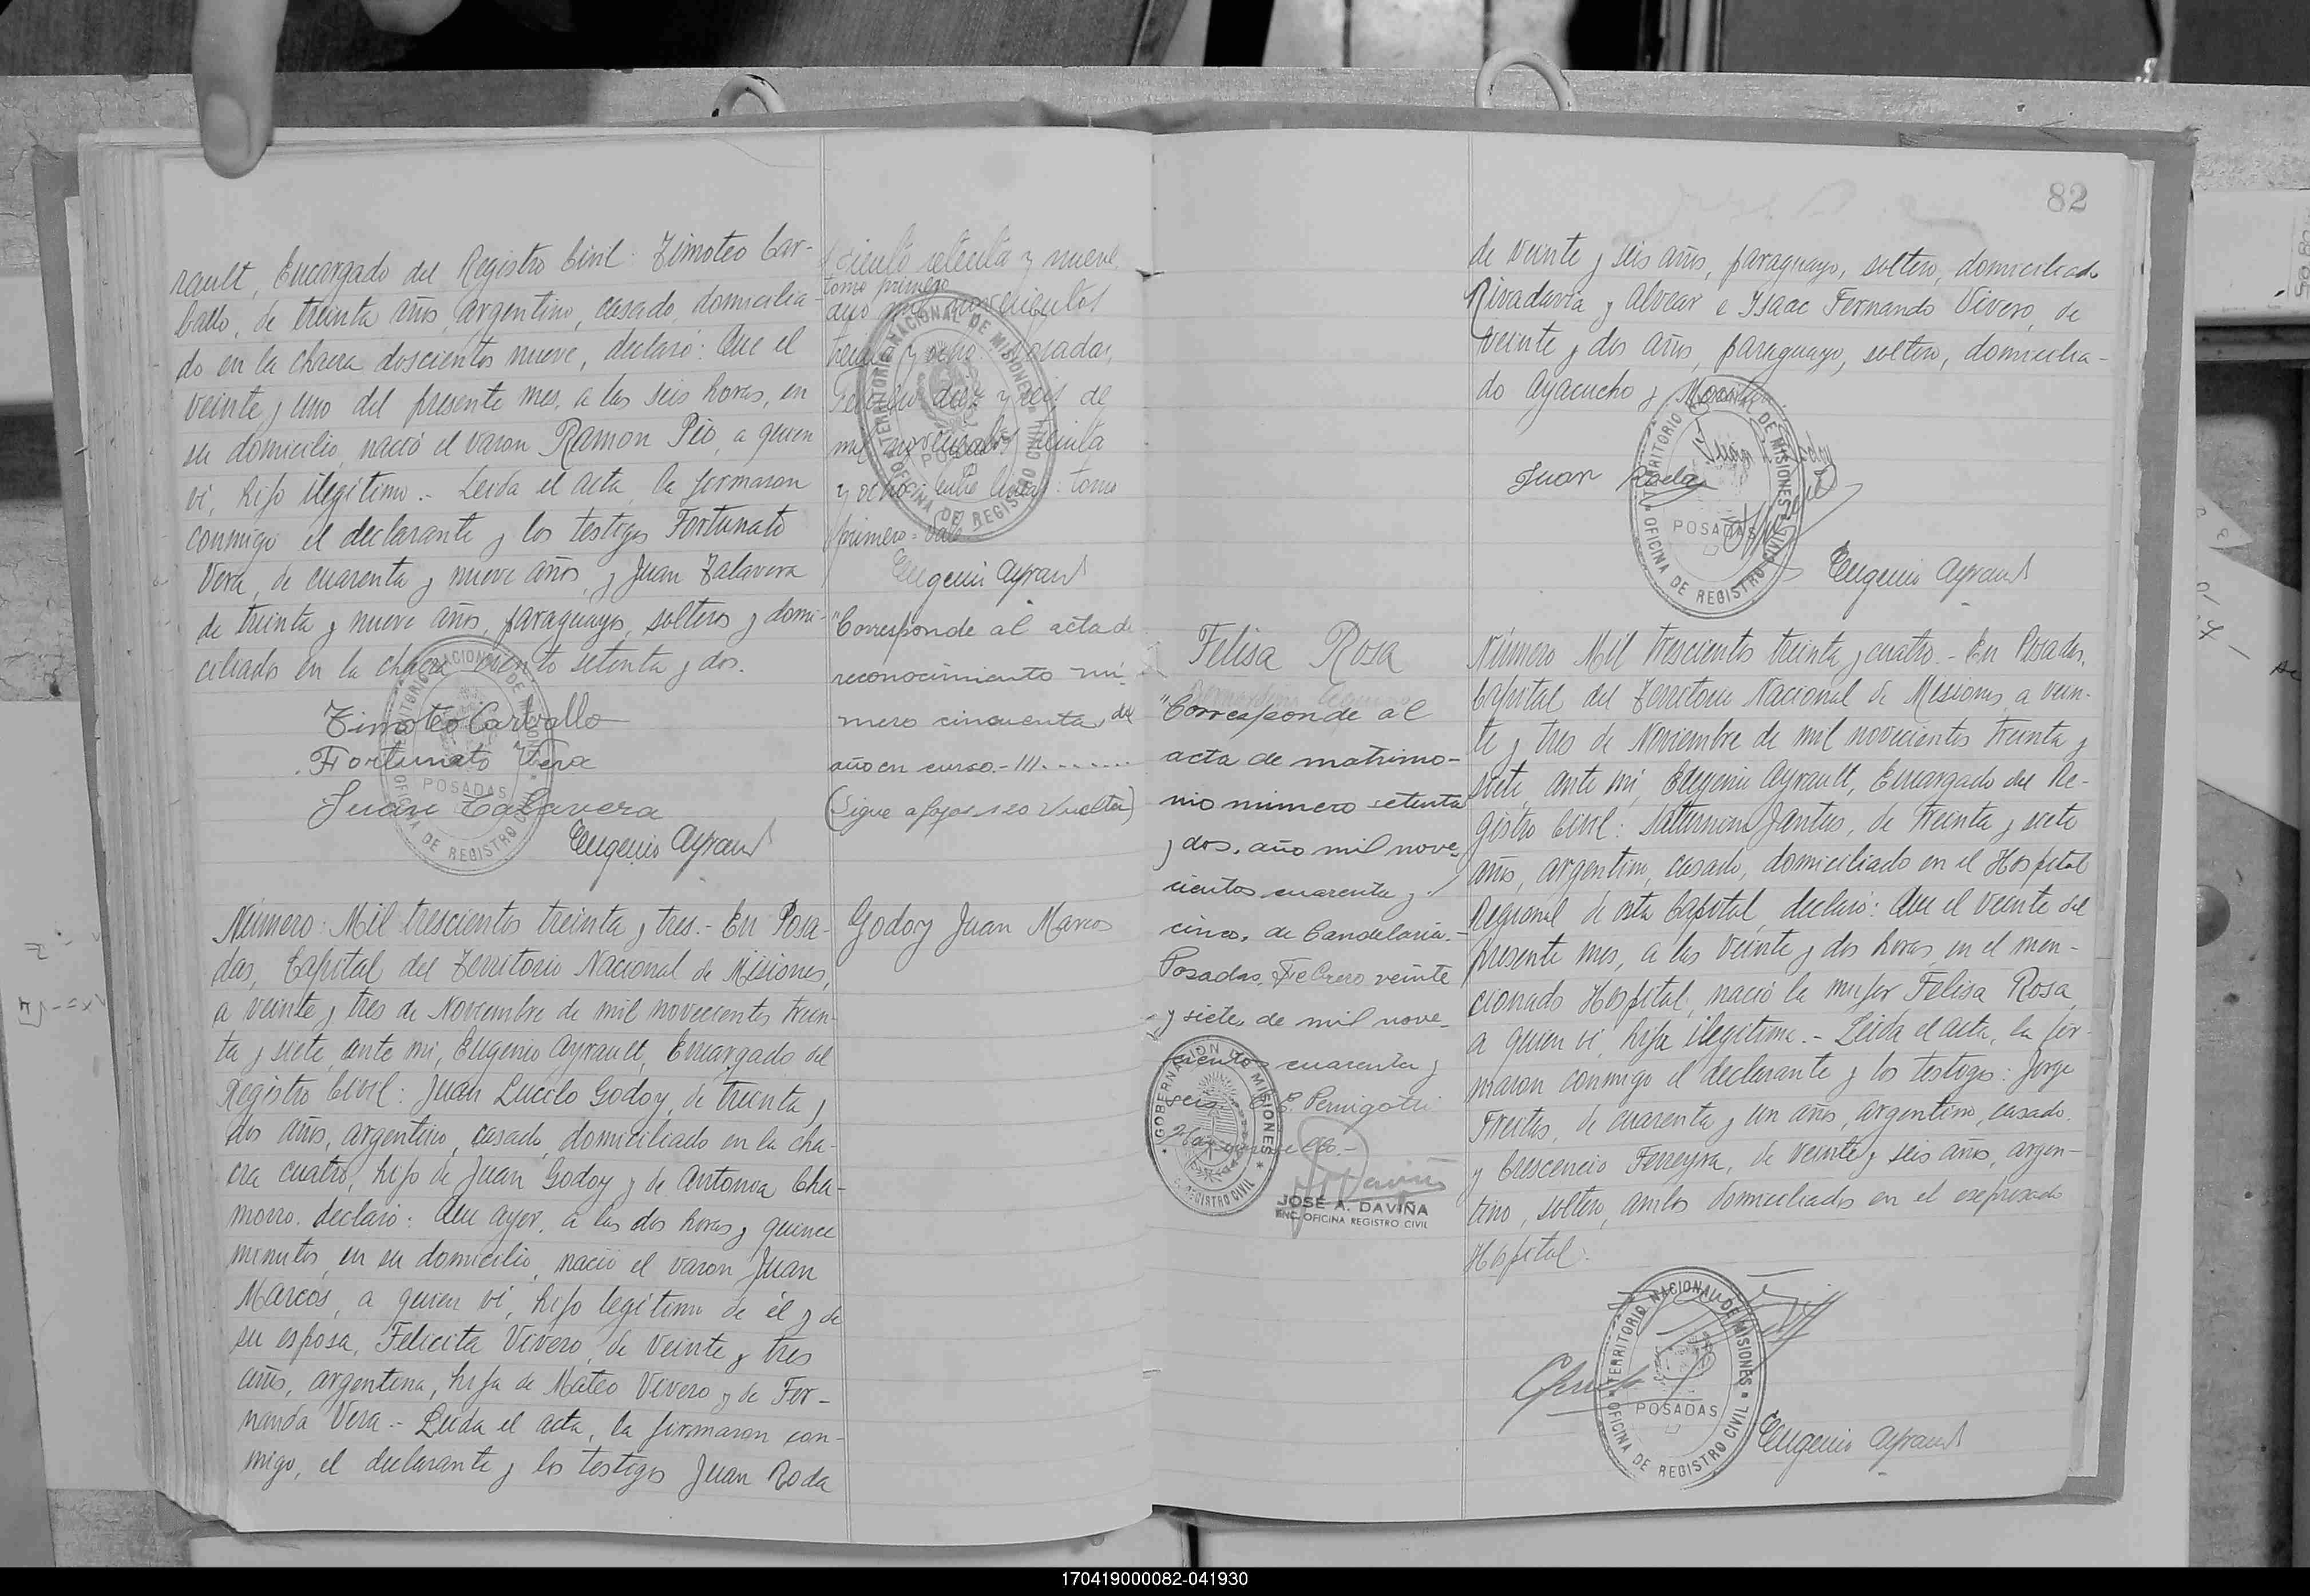 rault, Encargado del Registro Civil: Timoteo Car-
ballo, de treinta años, argentino, casado, domicilia-
do en la chacra doscientos nueve, declaró: Que el
veinte y uno del presente mes, a las seis horas, en
su domicilio, nació el varon Ramon Pio, a quien
vi, hijo ilegitimo.- Leida el acta, la firmaron
conmigo el declarante y los testigos Fortunato
Vera, de cuarenta y nueve años, y Juan Talavera
de treinta y nueve años, paraguayos, solteros y domi-
ciliados en la chacra ciento setenta y dos.
Timoteo Carballo
Fortunato Vera
Juan Talavera
Eugenio Ayrault
TERRITORIO NACIONAL DE MISIONES
POSADAS
OFICINA DE REGISTRO CIVIL
ciento setenta y nueve
tomo primero
año mil novecientos
treinta y ocho. Posadas,
diez y seis de
mil novecientos treinta
y ocho: entre lineas: tomo
primero = Vale
Eugenio Ayrault
TERRITORIO NACIONAL DE MISIONES
POSADAS
OFICINA DE REGISTRO CIVIL
"Corresponde al acta de
reconocimiento nú-
mero cincuenta, del
año en curso.- III.......
(Sigue a fojas 120 Vuelta)
Número: Mil trescientos treinta y tres.- En Posa-
das, Capital del Territorio Nacional de Misiones,
a veinte y tres de Noviembre de mil novecientos trein-
ta y siete, ante mi, Eugenio Ayrault, Encargado del
Registro Civil: Juan Lucilo Godoy, de treinta y
dos años, argentino, casado, domiciliado en la cha-
cra cuatro, hijo de Juan Godoy y de Antonia Cha-
morro, declaró: Que ayer, a las dos horas y quince
minutos, en su domicilio, nació el varon Juan
Marcos, a quien vi, hijo legitimo de él y de
su esposa, Felicita Vivero, de veinte y tres
años, argentina, hija de Mateo Vivero y de Fer-
nanda Vera.- Leida el acta, la firmaron con-
migo, el declarante y los testigos Juan Roda
Godoy Juan Marcos
82
de veinte y seis años, paraguayo, soltero, domiciliado
Rivadavia y Alvear e Isaac Fernando Vivero, de
veinte y dos años, paraguayo, soltero, domicilia-
do Ayacucho y
Juan Roda
Eugenio Ayrault
TERRITORIO NACIONAL DE MISIONES
POSADAS
OFICINA DE REGISTRO CIVIL
Felisa Rosa
"Corresponde al
acta de matrimo-
nio número setenta
y dos, año mil nove-
cientos cuarenta y
cinco, de Candelaria.-
Posadas, Febrero veinte
y siete, de mil nove-
cientos cuarenta y
seis. E. Pernigotti
GOBERNACION MISIONES
REGISTRO CIVIL
JOSÉ A. DAVIÑA
ENC. OFICINA REGISTRO CIVIL
Número Mil trescientos treinta y cuatro.- En Posadas,
Capital del Territorio Nacional de Misiones, a vein-
te y tres de Noviembre de mil novecientos treinta y
siete, ante mi, Eugenio Ayrault, Encargado del Re-
gistro Civil: Saturnino Santus, de treinta y siete
años, argentino, casado, domiciliado en el Hospital
Regional de esta Capital, declaró: Que el veinte del
presente mes, a las veinte y dos horas, en el men-
cionado Hospital, nació la mujer Felisa Rosa,
a quien vi, hija ilegitima.- Leida el acta, la fir-
maron conmigo el declarante y los testigos: Jorge
Freitas, de cuarenta y un años, argentino, casado
y Crescencio Ferreyra, de veinte y seis años, argen-
tino, soltero, ambos domiciliados en el expresado
Hospital.
TERRITORIO NACIONAL DE MISIONES
POSADAS
OFICINA DE REGISTRO CIVIL
Eugenio Ayrault
170419000082-041930